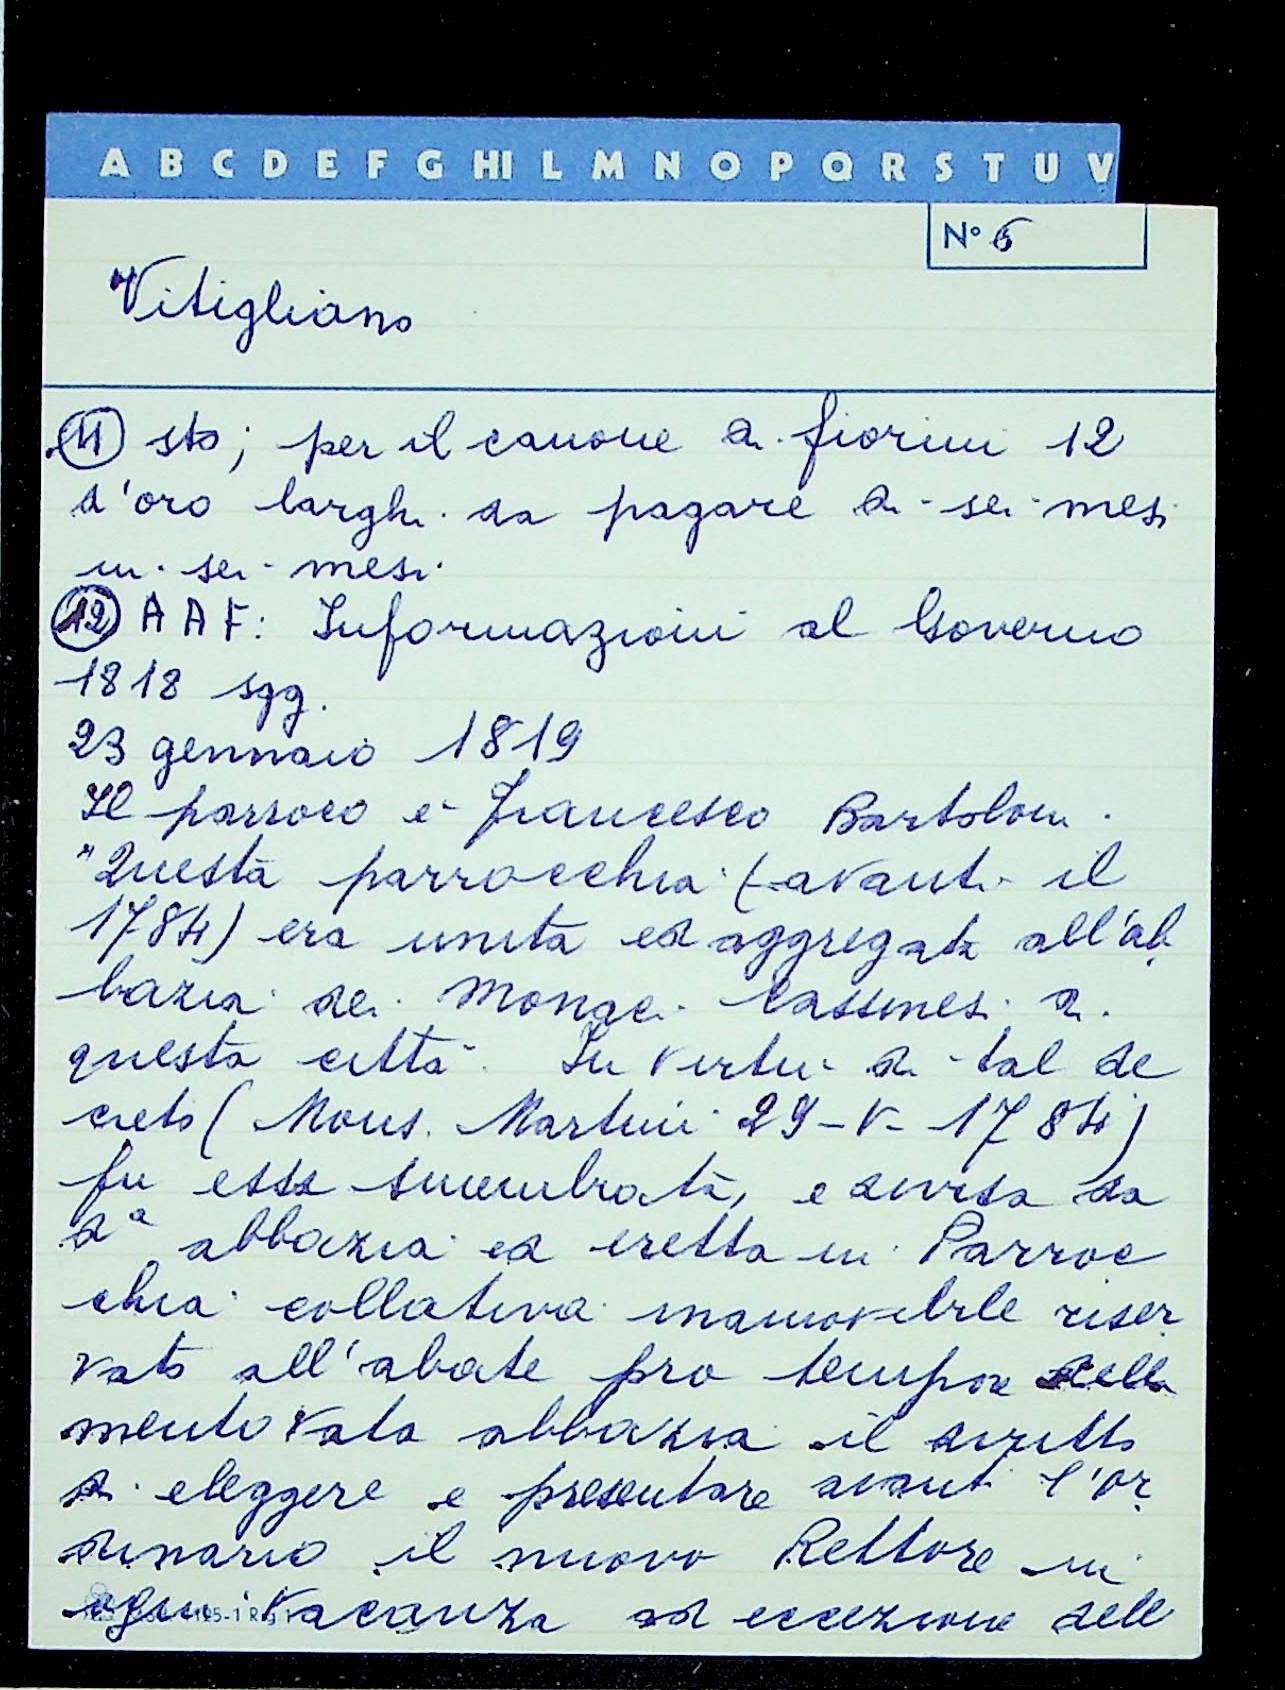 A B C D E F G H I L M N O P Q R S T U V
N° 6
Vitigliano
11 sto; per il canone di fiorini 12
d'oro larghi da pagare di sei mesi
in sei mesi.
12 A A F: Informazioni al Governo
1818 sgg.
23 gennaio 1819
Il parroco è Francesco Bartolini.
"Questa parrocchia (avanti il
1784) era unita ed aggregata all'ab
bazia dei Monaci Cassinesi di
questa città. In virtù di tal de
creto (Mons. Martini 29-V-1784)
fu essa smembrata, e divisa da
da abbazia ed eretta in Parroc
chia collativa inamovibile riser
vato all'abate pro tempore della
mentovata abbazia il diritto
di eleggere e presentare avanti l'or
dinario il nuovo Rettore in
ogni vacanza ad eccezione dell